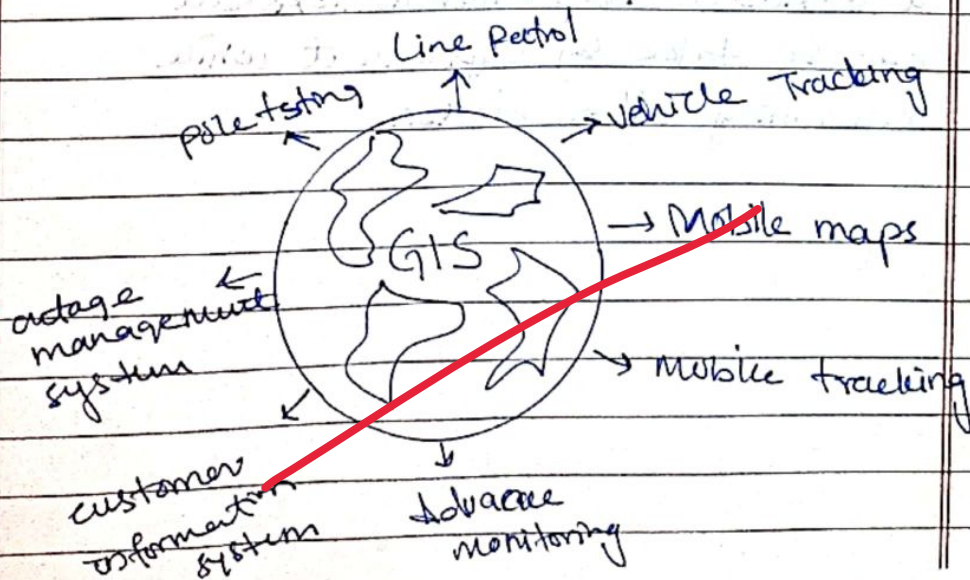 Line Pectrol
pole tsting
vehicle Tracking
Mobile maps
GIS
outage
management
system
mobile tracking
customer
information
system
Advacne
monitoring